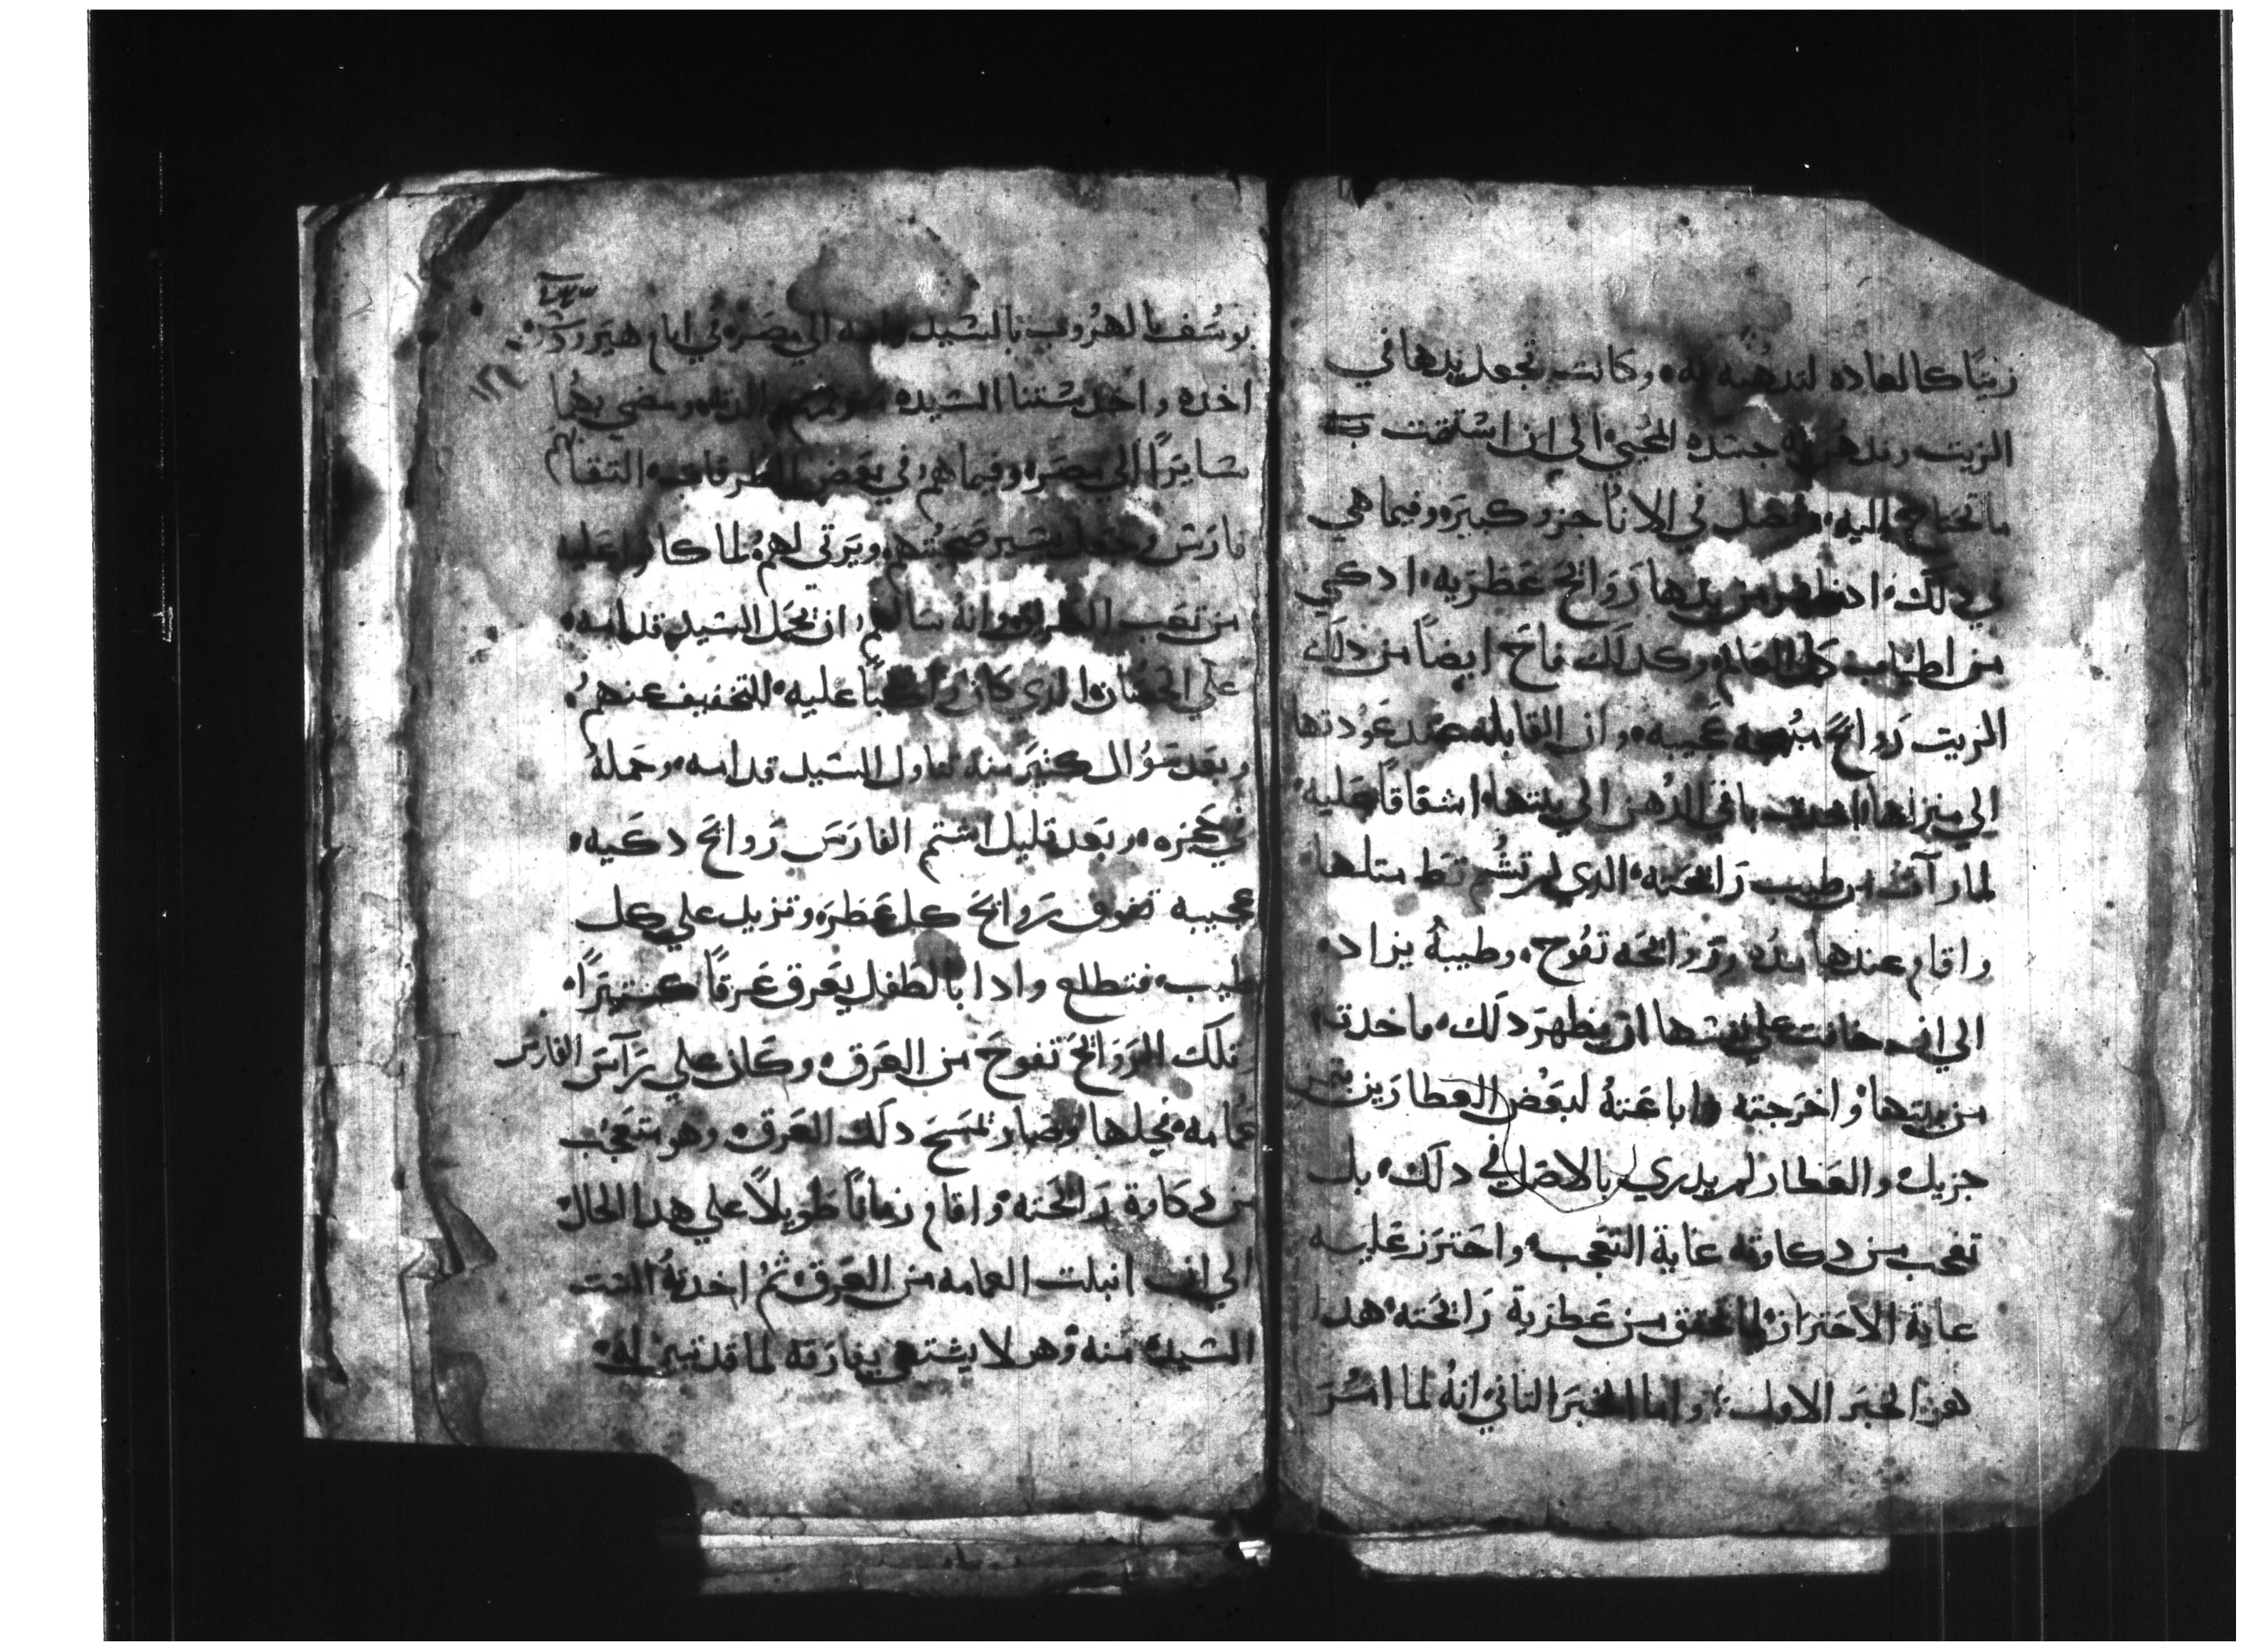 زيتًا كالعاده لتدهنه به وكانت تجعل يدها في
الزيت وتدهن به جسده المحيي الي ان استلقت
ما تحتاج اليه وفضل في الانا جزو كبيره وفيما هي
في دلك اد ظهر من يدها روايح عطريه ادكي
من اطياب كل العالم وكدلك فاح ايضًا من دلك
الزيت روايحً عجيبه وان القابله عند عودتها
الي منزلها اخدت باقي الدهن الي بيتها اشفاقًا عليه
لما رآت من طيب رايحته الدي لم تشُم قط متلها
واقام عندها مده وروايحه تفُوح وطيبهُ يزاد
الي ان خافت علي نفسها ان يظهر دلك فاخدته
من بيتها واخرجته واباعتهُ لبعض العطارين بتمن
جزيل والعطار لم يدري بالاصل في دلك بل
تعجب من دكاوته غاية التعجب واحترز عليه
غاية الاحتراز لما تحقق من عطرية رايحته هدا
هو الخبر الاول واما الخبر التاني انهُ لما امُر
يوسُف بالهرُوب بالسيد وامه الي مصر في ايام هيرودس
اخده واخد ستنا السيده ومضي بهما
سايرًا الي مصر وفيما هم في بعض الطرقات التقاهم
فارس وجعل يسير صحبتهم ويرتي لهم لما كانوا عليه
من تعب الطريق وانه سالهم ان تحمل السيد قدامه
علي الحصان الدي كان راكبًا عليه للتخفيف عنهم
وبعد سوُال كتير منه تناول السيد قدامه وحمله
في حجزه وبعد قليل اشتم الفارس روايح دكيه
عجيبه تفوق روايح كل عطره وتزيد علي كل
طيب فتطلع وادا بالطفل يعرق عرقًا كتيرًا
وتلك الروايح تفوح من العرق وكان علي رآس الفارس
عمامه فحلها وصار يمسح دلك العرق وهو متعجب
من دكاوة رايحته واقام زمانًا طويلاً علي هدا الحال
الي ان انبلت العمامه من العرق تم اخدتهُ الست
السيده منه وهو لا يشتهي يفارقه لما قد تبين له